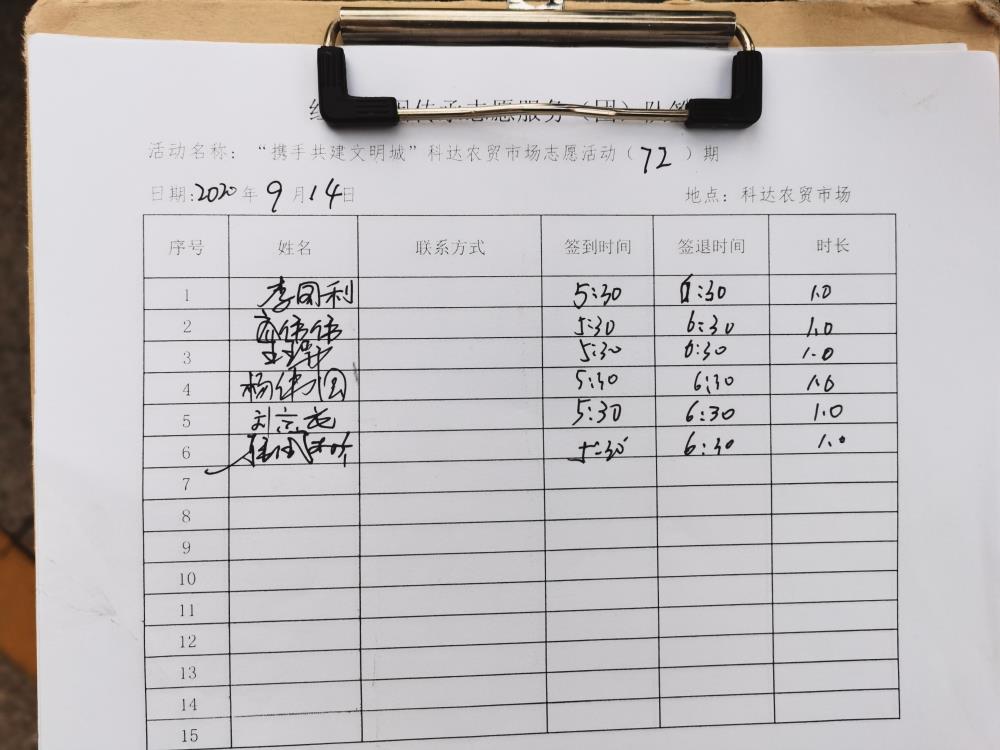 传承志愿服务(团)队
活动名称:“携手共建文明城”科达农贸市场志愿活动(72)期
日期:2020年9月14日 地点:科达农贸市场
序号 姓名 联系方式 签到时间 签退时间 时长
1 李国利 5:30 6:30 1.0
2 伟伟 5:30 6:30 1.0
3 5:30 6:30 1.0
4 杨 5:30 6:30 1.0
5 刘 5:30 6:30 1.0
6 5:30 6:30 1.0
7
8
9
10
11
12
13
14
15